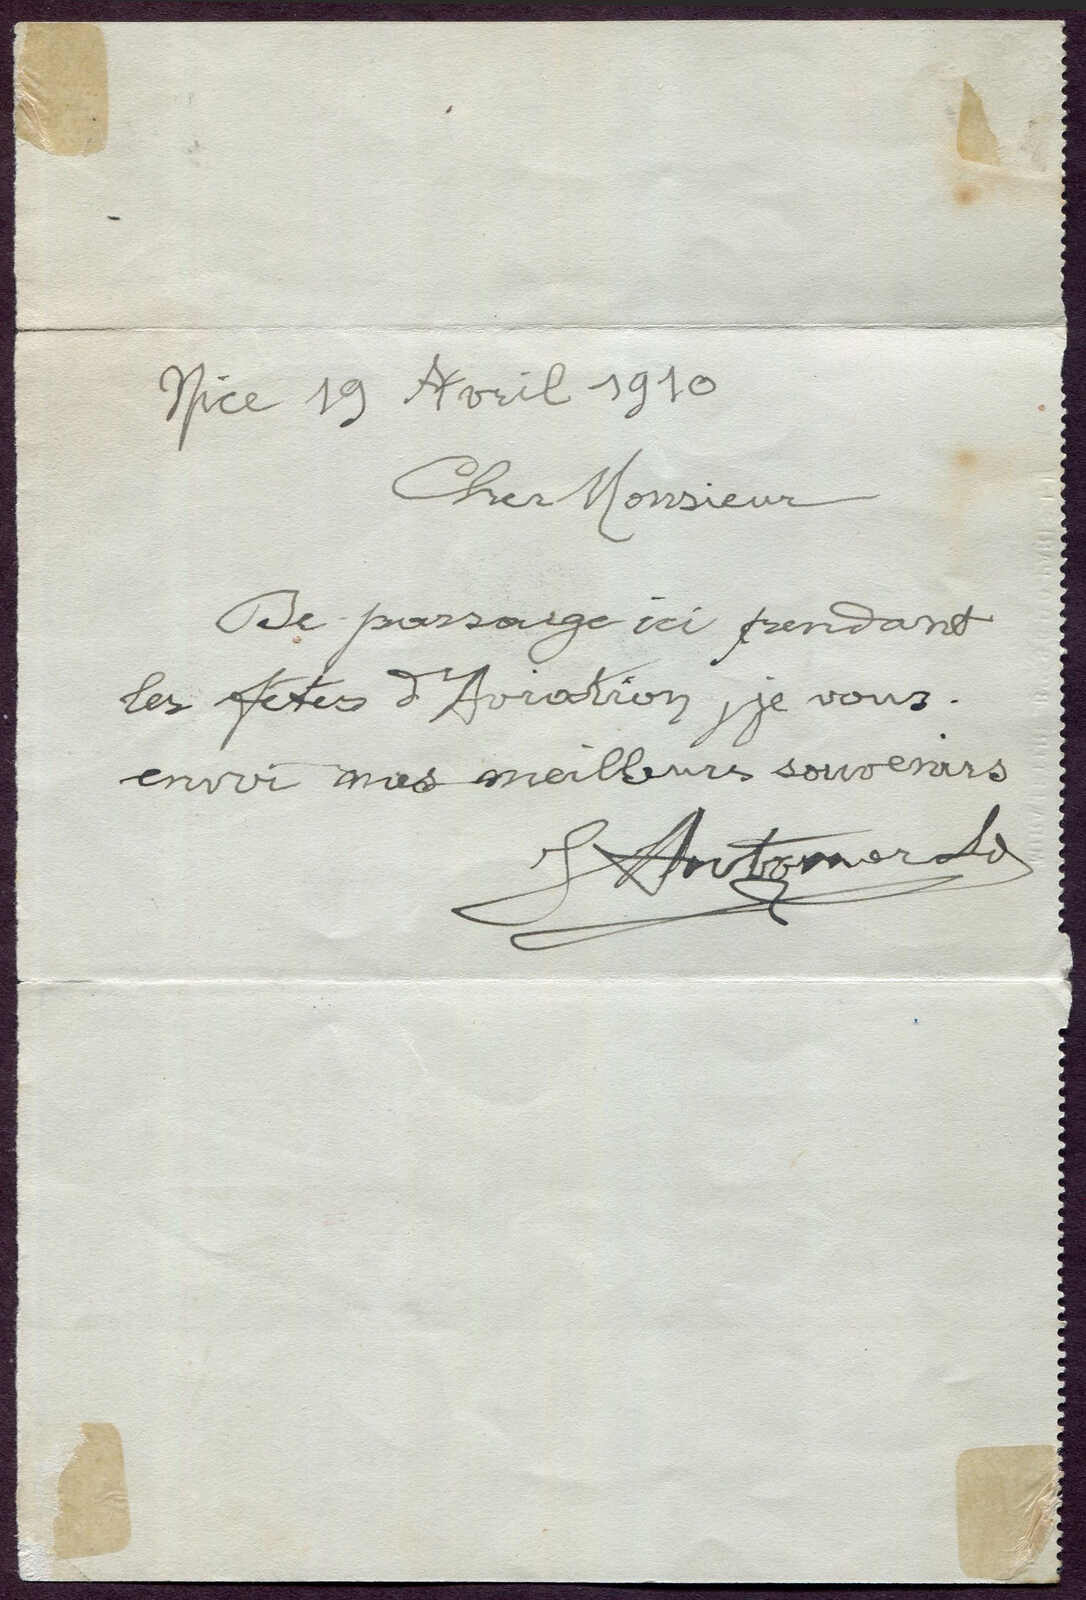 Nice 19 Avril 1910
Cher Monsieur
De passage ici pendant
les fêtes d'Aviation, je vous
envoi mes meilleurs souvenirs